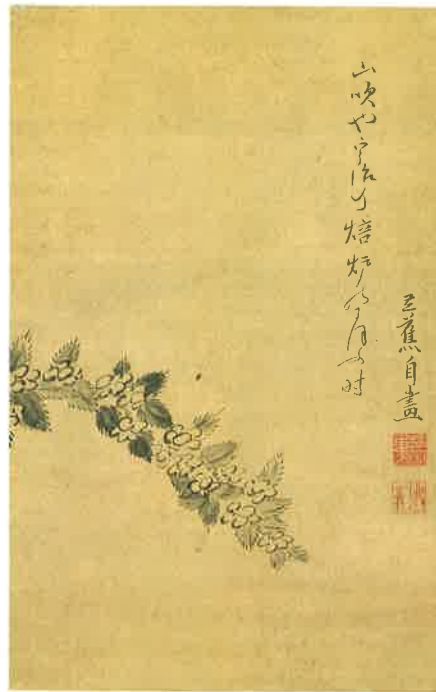 山吹や宇治乃焙炉の匂ふ時
芭蕉自畫